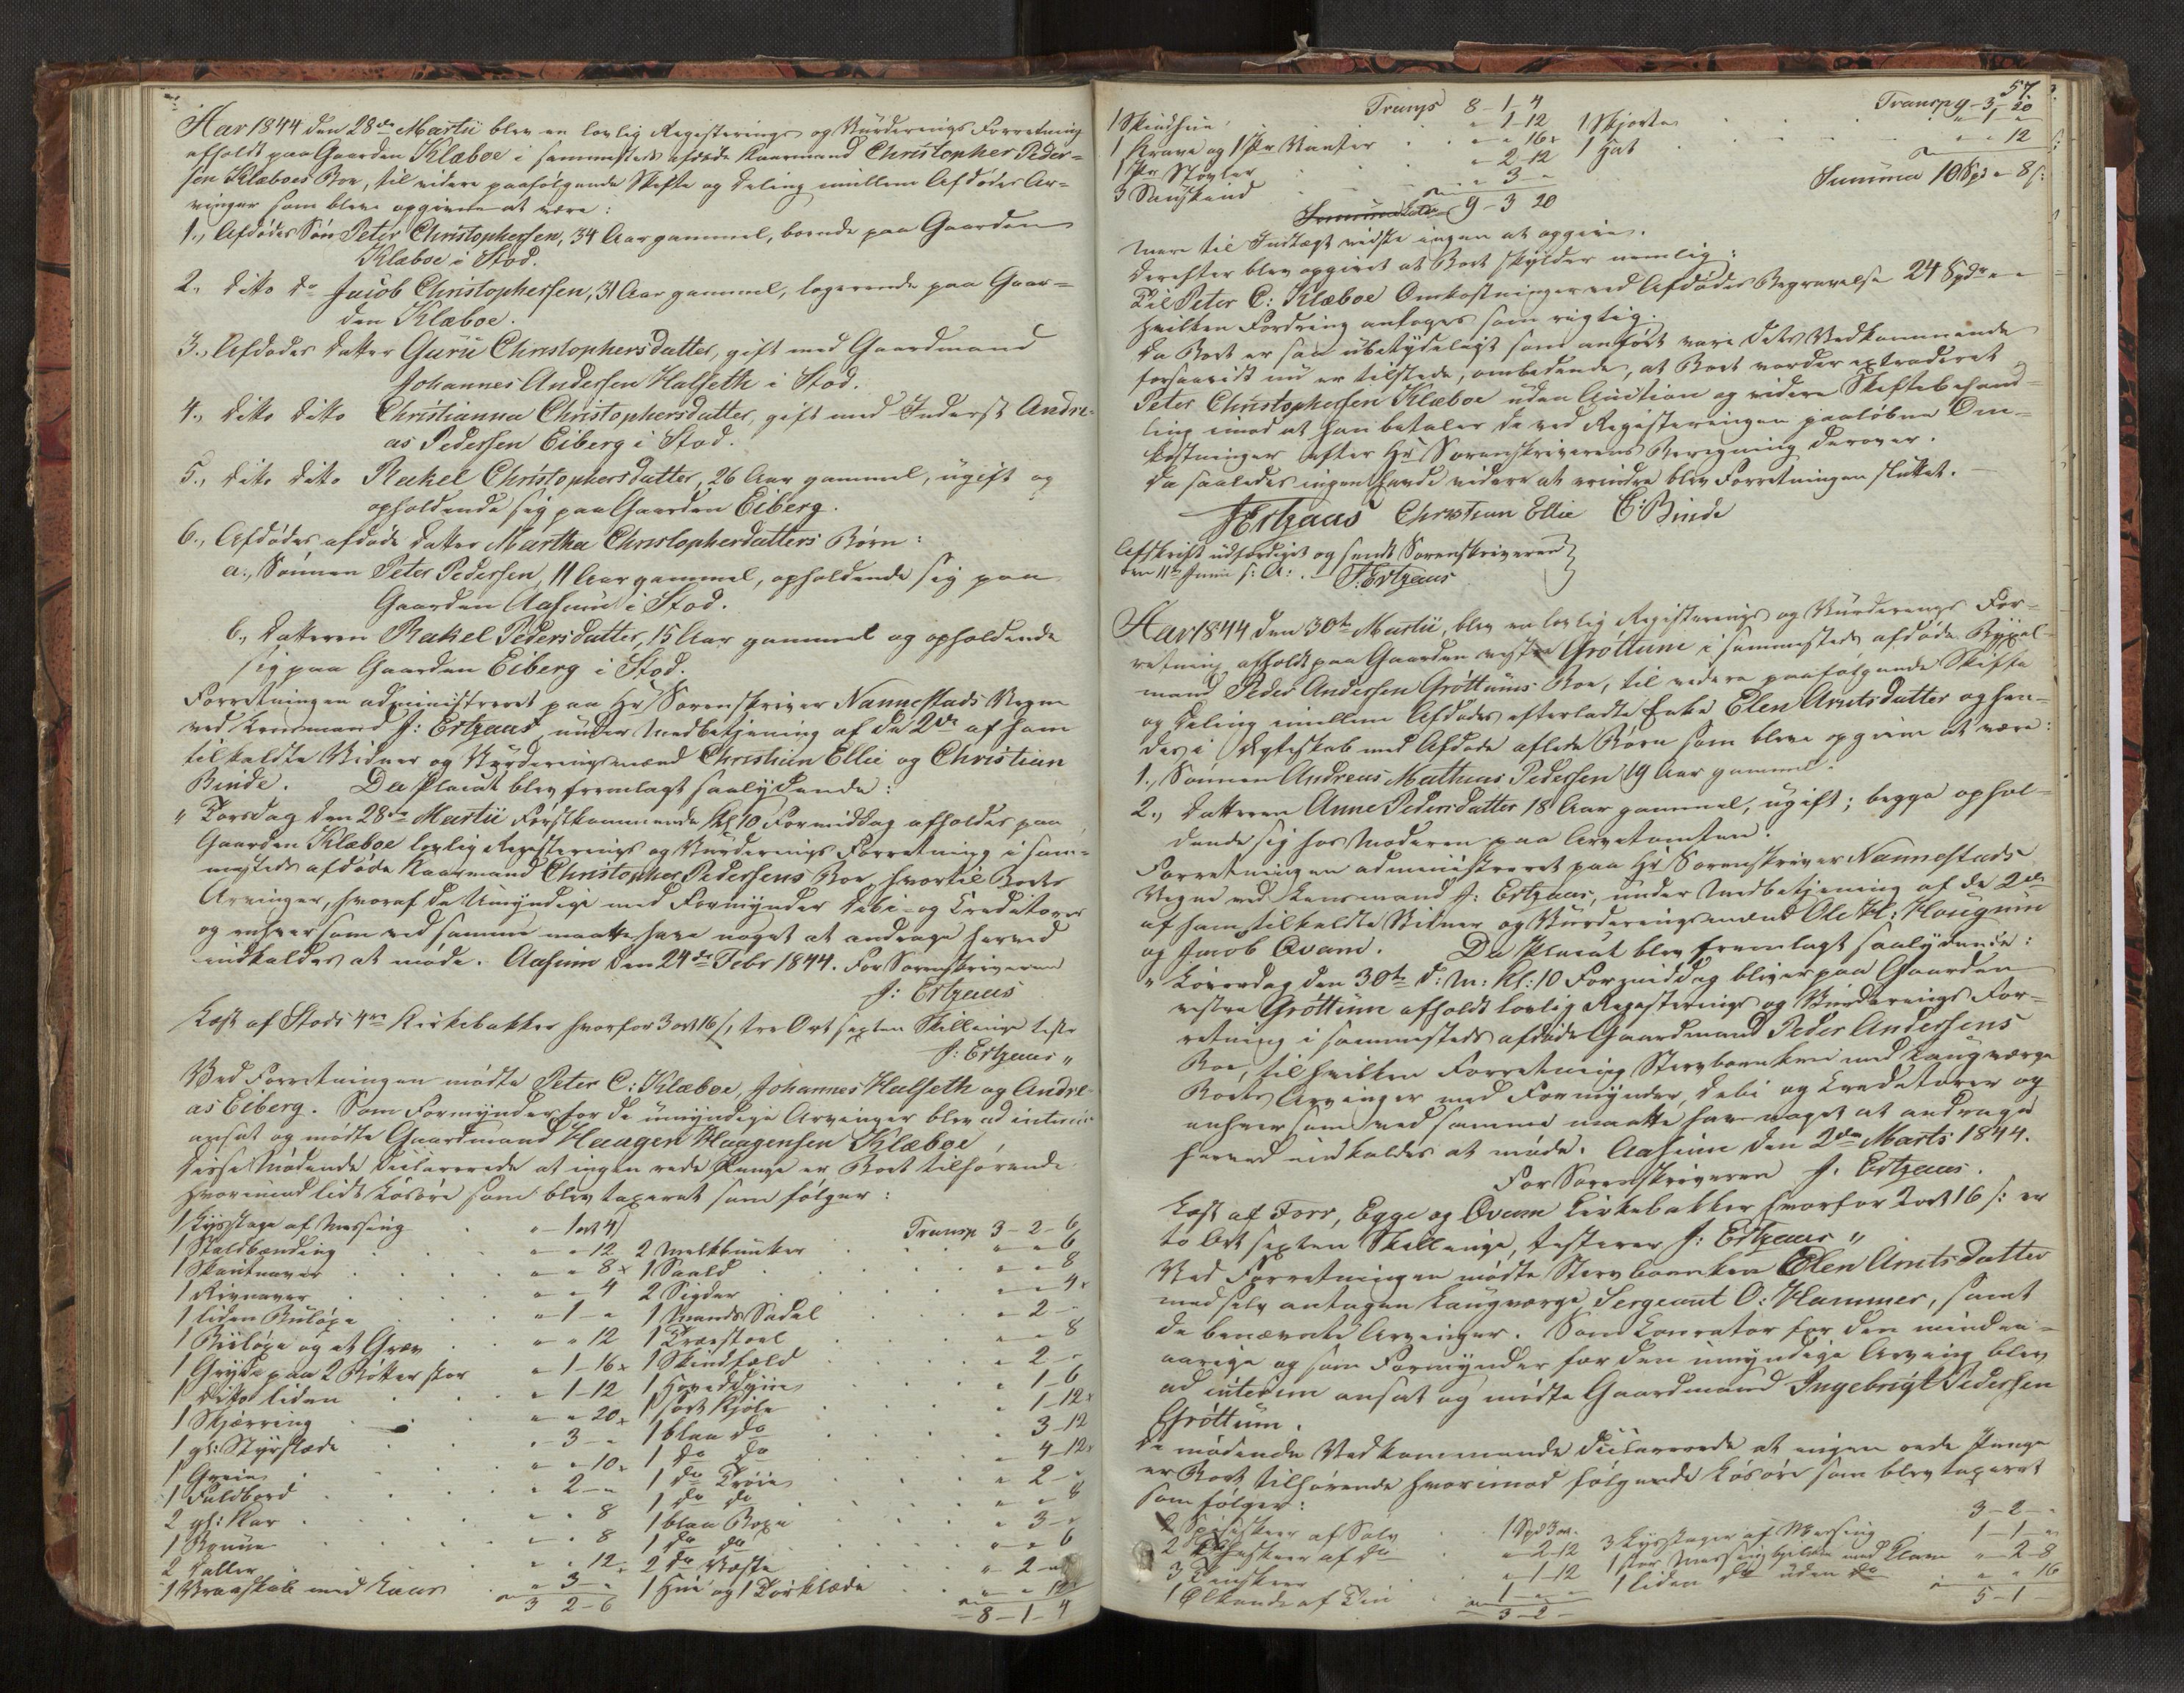 Aar 1844 den 28de Martii blev en lovlig Registerings og Vurderings Forretning
afholdt paa Gaarden Klæboe i sammesteds afdøde Kaarmand Christopher Peder-
sen Klæboes Boe, til videre paafølgende Skifte og Deling imellem Afdødes Ar-
vinger som bleve opgivne at være:
1., Afdødes Søn Peter Christophersen, 34 Aar gammel, boende paa Gaarden
Klæboe i Stod.
2., Ditto do Jacob Christophersen, 31 Aar gammel, logerende paa Gaar-
den Klæboe.
3., Afdødes Datter Guru Christophersdatter, gift med Gaardmand
Johannes Andersen Halseth i Stod.
4., Ditto Ditto Christianna Christophersdatter, gift med Inderst Andre-
as Pedersen Eiberg i Stod.
5., Ditto Ditto Rakel Christophersdatter, 26 Aar gammel, ugift og
opholdende sig paa Gaarden Eiberg.
6., Afdødes afdøde Datter Martha Christopherdatters Børn:
a., Sønnen Peter Pedersen, 11 Aar gammel, opholdende sig paa
Gaarden Aasum i Stod.
b., Datteren Rakel Pedersdatter, 15 Aar gammel og opholdende
sig paa Gaarden Eiberg i Stod.
Forretningen administreret paa Hr Sorenskriver Nannestads Vegne
ved Lensmand J: Ertzaas under Medbetjening af de 2de af ham
tilkaldte Vidner og Vurderingsmænd Christian Ellie og Christian
Binde. Da Placat blev fremlagt saalydende:
" Torsdag den 28de Martii førstkommende Kl 10 Formiddag afholdes paa
Gaarden Klæboe lovlig Registerings og Vurderings Forretning i sam-
mesteds afdøde Kaarmand Christopher Pedersens Boe, hvortil Boets
Arvinger, hvoraf de Umyndige med Formynder Debi- og Creditorer
og enhver som ved samme maatte have noget at andrage herved
indkaldes at møde. Aasum den 24de Febr 1844. For Sorenskriveren
J: Ertzaas
Læst af Stods 4re Kirkebakker hvorfor 3 ort 16 s, tre Ort sexten Skillinge teste
J: Ertzaas "
Ved Forretningen mødte Peter C: Klæboe, Johannes Halseth og Andre-
as Eiberg. Som Formynder for de umyndige Arvinger blev ad interim
ansat og mødte Gaardmand Haagen Haagensen Klæboe
Disse Mødende declarerede at ingen rede Penge er Boet tilhørende
hvorimod lidt Løsøre som blev taxeret som følger:
1 Lysstage af Messing " 1 ort 4 s Transp 3-2-6
1 Staldbænding " " 12 2 Melkbunker " " 6
1 Skautnaver " " 8 1 Saald " " 8
1 Rivnaver " " 4 2 Sigder " " 4
1 liden Buløxe " 1 " 1 Mands Sadel " 2 "
1 Buløxe og et Græv " " 12 1 Træstoel " " 8
1 Gryde paa 2 Potter stor " 1-16 1 Skindfeld " 2 "
1 Ditto liden " 1-12 1 Hoveddyne " 1-6
1 Skjæring " " 20 1 sort Kjole " 1-12
1 gl: Styrslæde " 3 " 1 blaa do " 3-12
1 Greie " " 10 1 do do " 4-12
1 Fuldbord " 2 " 1 do Trøie " 2 "
2 gl: Kar " " 8 1 do do " " 8
1 Bryne " " 8 1 blaa Boxe " 3 "
2 Taller " " 12 1 do do " " 6
1 Vraaskab med Laas " 3 " 2 do Veste " 2 "
3 2-6 1 Hue og 1 Tørklæde " " 12
8-1-4
57.
Transp 8-1-4 Transp 9-3-20
1 Skindhue " 1-12 1 Skjorte " 1 "
1 Krave og 1 Pr Vanter " " 16 1 Hat " " 12
1 Pr Støvler " 2-12 Summa 10 Spd " 8 s:
3 Saueskind " 3 "
9-3 20
Mere til Indtægt vidste ingen at opgive.
Derefter blev opgivet at Boet skylder nemlig:
Til Peter C: Klæboe Omkostninger ved Afdødes Begravelse 24 Spdr " "
hvilken Fordring antages som rigtig.
Da Boet er saa ubetydeligt som anført vare dets Vedkommende
forsaavidt nu er tilstede, ombedende, at Boet vorder extraderet
Peter Christophersen Klæboe uden Auction og videre Skiftebehand-
ling imod at han betaler de ved Registeringen paaløbne Om-
kostninger efter Hr Sorenskriverens Beregning derover.
Da saaledes ingen havde videre at erindre blev Forretningen sluttet.
JErtzaas Christian Ellie C: Binde
Afskrift udfærdiget og sendt Sorenskriveren
den 11te Junii s: A: J: Ertzaas
Aar 1844 den 30te Martii, blev en lovlig Registerings og Vurderings For-
retning afholdt paa Gaarden vestre Grøttum i sammesteds afdøde Bøxel-
mand Peder Andersen Grøttums Boe, til videre paafølgende Skifte
og Deling imellem Afdødes efterladte Enke Elen Arntsdatter og hen-
des i Ægteskab med Afdøde aflede Børn som bleve opgivne at være:
1., Sønnen Andreas Mathias Pedersen 19 Aar gammel.
2., Datteren Anne Pedersdatter 18 Aar gammel, ugift; begge ophol-
dende sig hos Moderen paa Arvetomten.
Forretningen administreret paa Hr Sorenskriver Nannestads
Vegne ved Lensmand J: Ertzaas, under Medbetjening af de 2de
af ham tilkaldte Vidner og Vurderingsmænd Ole H: Hougum
og Jacob Qvam. Da Placat blev fremlagt saalydende:
" Løverdag den 30te d: M: Kl: 10 Formiddag bliver paa Gaarden
vestre Grøttum afholdt lovlig Registerings og Vurderings For-
retning i sammesteds afdøde Gaardmand Peder Andersens
Boe, til hvilken Forretning Stervboenken med Laugværge
Boets Arvinger med Formynder, Debi og Creditorer og
enhver som ved samme maatte have noget at andrage
herved indkaldes at møde. Aasum den 2den Marts 1844.
For Sorenskriveren J. Ertzaas.
Læst af Forr, Egge og Qvam Kirkebakker hvorfor 2 ort 16 s: er
to Ort sexten Skillinge, testerer J: Ertzaas "
Ved Forretningen mødte Stervboenken Elen Arntsdatter
med selv antagen Laugværge Sergeant O: Hammer, samt
de benævnte Arvinger. Som Courator for den mindre-
aarige og som Formynder for den umyndige Arving blev
ad interim ansat og mødte Gaardmand Ingebrigt Pedersen
Grøttum.
De mødende Vedkommende declarerede at ingen rede Penge
er Boet tilhørende hvorimod følgende Løsøre som blev taxeret
som følger: 3-2-"
2 Spiseskeer af Sølv 1 Spd 3 ort 3 Lysstager af Messing 1-1-"
2 Theskeer af do " 2-12 1 stor Messingkjedel med Laag " 2-8
3 Tinskeer " 1-12 1 liden do uden do " " 16
1 Ølkande af Tin 1 " " 5-1
3-2-